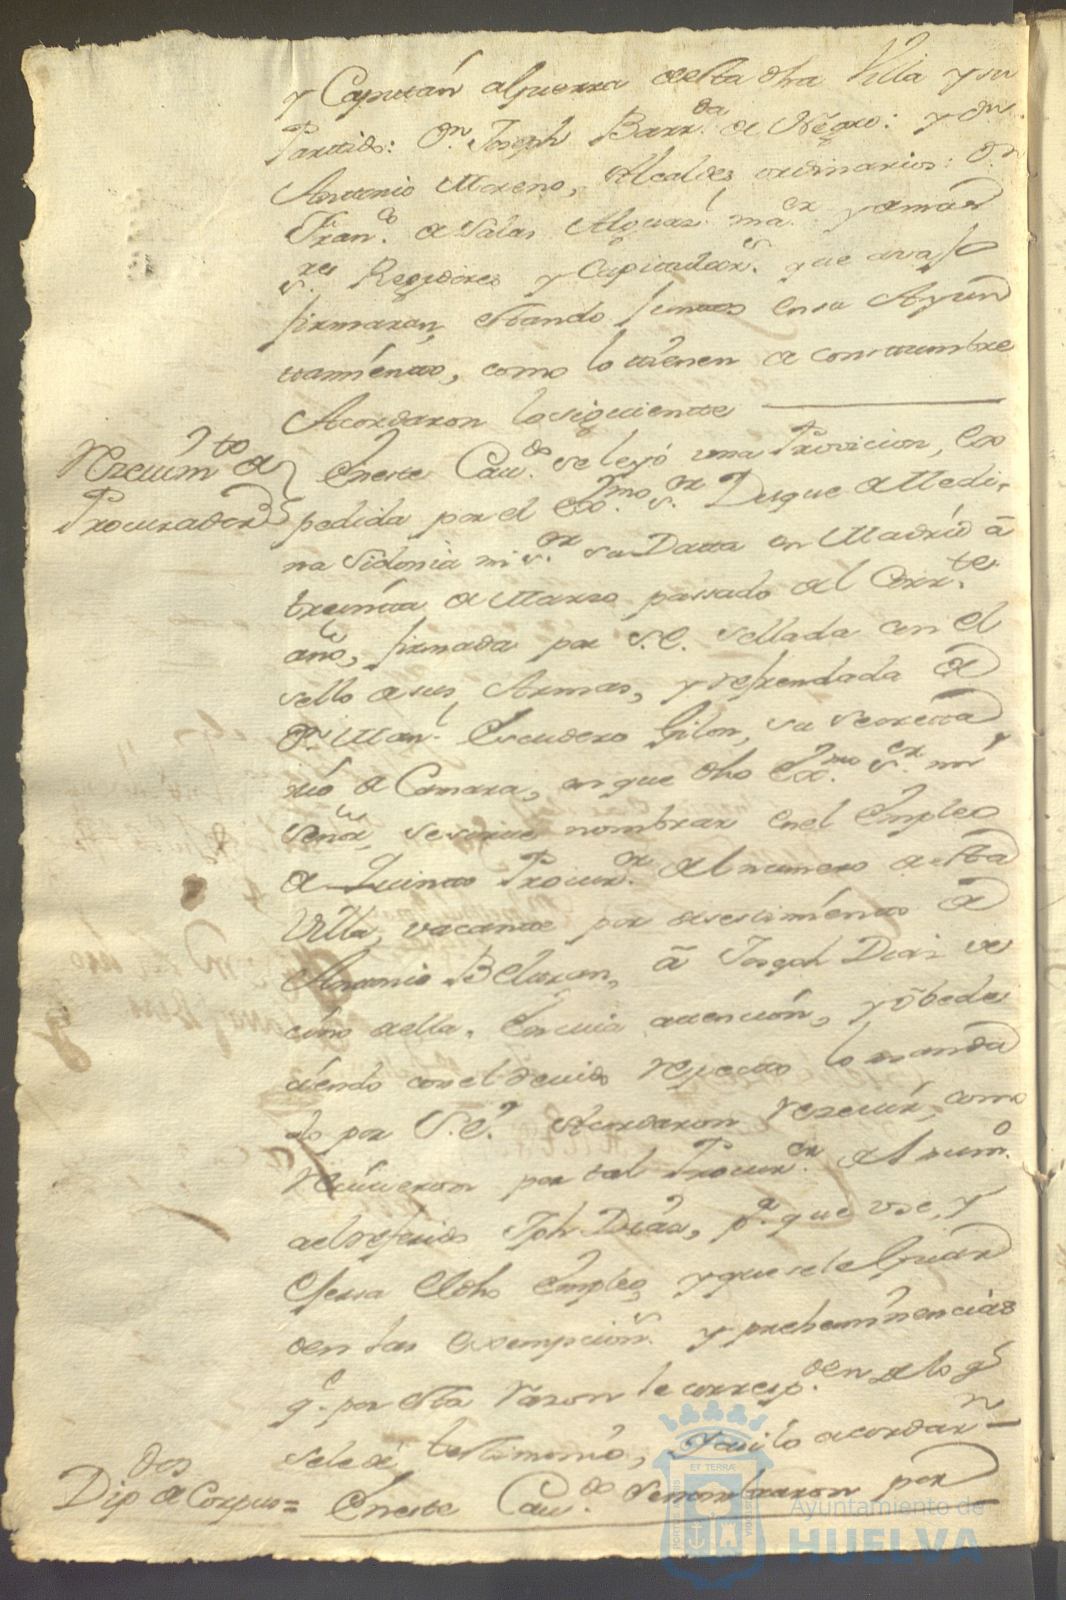 y Capitán aGuerra desta dha Villa y su
Partido: Dn. Joseph Barr.da de Negro: y Dn.
Antonio Moreno, Alcaldes ordinarios: Dn
Fran.co de Salas Alguasl. mr. y demas
s.res Regidores y Capitulars. que avajo
firmaran, estando juntos en su Ayun
tamiento, como lo tienen de constumbre
Acordaron lo siguiente
Rzeuim.to de
Procurador
Eneste Cau.do se leyó una Provicion, Ex
pedida por el Exmo. Sor. Duque de Medi,
na Sidonia mi s.or su Datta en Madrid â
treinta de Marzo passado del Corr.te
año, firmada por S.E. sellada con el
sello de sus Armas, y refrendada de
Dn. Man.l Escudero Gilon, su Secretta
rio de Camara, en que dho Exmo Sor. mi
señor, se sirue nombrar enel Empleo
de Quinto Procur.or del numero desta
Villa, vacante por desestimiento de
Antonio Beltran, â Joseph Diaz ve
cino della. En cuia attención, y obede
ciendo con el deuido respecto lo manda
do por S.E. Acordaron Reseuir, como
Reciuieron por tal Procur.or del num.o
a el referido Jph Diaz, p.a que use, y
ejersa el dho Empleo, y que se le Guar
den las exempcions. y preheminencias
q.e por esta razon le corresp.den de lo q.e
se le dé testimonio, y así lo acordarn
Dip.dos de Corpus =
Eneste Cau.do se nombraron por
Ayuntamiento de
HUELVA